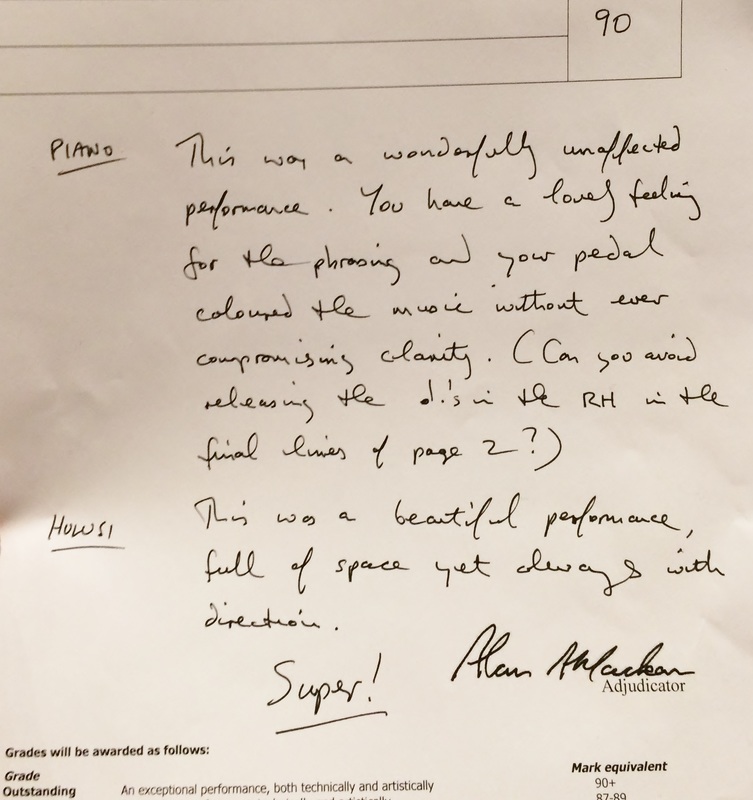 90
PIANO This was a wonderfully unaffected
performance. You have a lovely feeling
for the phrasing and your pedal
coloured the music without ever
compromising clarity. (Can you avoid
releasing the 𝅗𝅥.'s in the RH in the
final lines of page 2?)
HULUSI This was a beautiful performance,
full of space yet always with
direction.
Super! Alan
Adjudicator
Grades will be awarded as follows:
Grade Mark equivalent
Outstanding An exceptional performance, both technically and artistically 90+
87-89